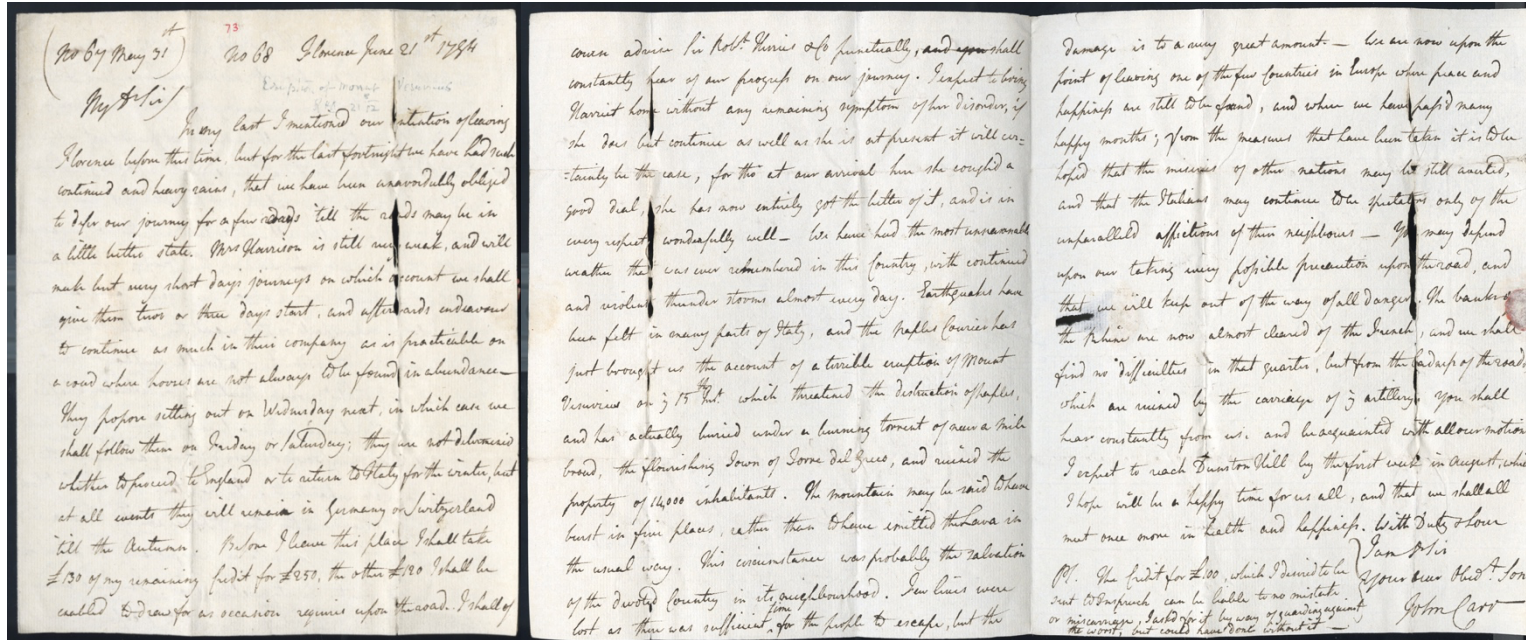 (No 67 May 31st)
73
No 68 Florence June 21st 1794
Erupt. of mount Vesuvius
My Dr Sir/
In my last I mentioned our intention of leaving
Florence before this time, but for the last fortnight we have had such
continued and heavy rains, that we have been unavoidably obliged
to defer our journey for a few days 'till the roads may be in
a little better state. Mrs Harrison is still very weak, and will
make but very short days journeys on which account we shall
give them two or three days start, and afterwards endeavour
to continue as much in their company as is practicable on
a road where horses are not always to be found in abundance—
They propose setting out on Wednesday next, in which case we
shall follow them on Friday or Saturday; they are not determined
whether to proceed to England or to return to Italy for the winter, but
at all events they will remain in Germany or Switzerland
till the Autumn. Before I leave this place I shall take
£130 of my remaining Credit for £250, the other £120 I shall be
enabled to draw for as occasion requires upon the road. I shall of
course advise Sir Robt. Herries & Co punctually, and you shall
constantly hear of our progress on our journey. I expect to bring
Harriet home without any remaining symptom of her disorder, if
she does but continue as well as she is at present it will cer=
=tainly be the case, for tho' at our arrival here she cough'd a
good deal, she has now entirely got the better of it, and is in
every respect wonderfully well— We have had the most unseasonable
weather that was ever remembered in this Country, with continued
and violent thunder storms almost every day. Earthquakes have
been felt in many parts of Italy, and the Naples Courier has
just brought us the account of a terrible eruption of Mount
Vesuvius on ye 15th Inst. which threatened the destruction of Naples,
and has actually buried under a burning torrent of near a mile
broad, the flourishing Town of Torre del Greco, and ruined the
property of 14,000 inhabitants. The mountain may be said to have
burst in five places, rather than to have emitted the Lava in
the usual way. This circumstance was probably the salvation
of the devoted Country in its neighbourhood. Few lives were
lost as there was sufficient time for the people to escape, but the
damage is to a very great amount.— We are now upon the
point of leaving one of the few Countries in Europe where peace and
happiness are still to be found, and where we have pass'd many
happy months; from the measures that have been taken it is to be
hoped that the miseries of other nations may be still averted,
and that the Italians may continue to be spectators only of the
unparalleled afflictions of their neighbours— You may depend
upon our taking every possible precaution upon the road, and
that we will keep out of the way of all Danger. The banks of
the Rhine are now almost cleared of the French, and we shall
find no difficulties in that quarter, but from the badness of the roads
which are ruined by the carriage of ye artillery. You shall
hear constantly from us, and be acquainted with all our motions
I expect to reach Dunston Hill by the first week in August, which
I hope will be a happy time for us all, and that we shall all
meet once more in health and happiness. With Duty & Love
I am Dr Sir
Your ever Obedt. Son
John Carr
PS. The Credit for £100, which I desired to be
sent to Inspruck can be liable to no mistake
or miscarriage, I ask'd for it by way of guarding against
the worst, but could have done without it—